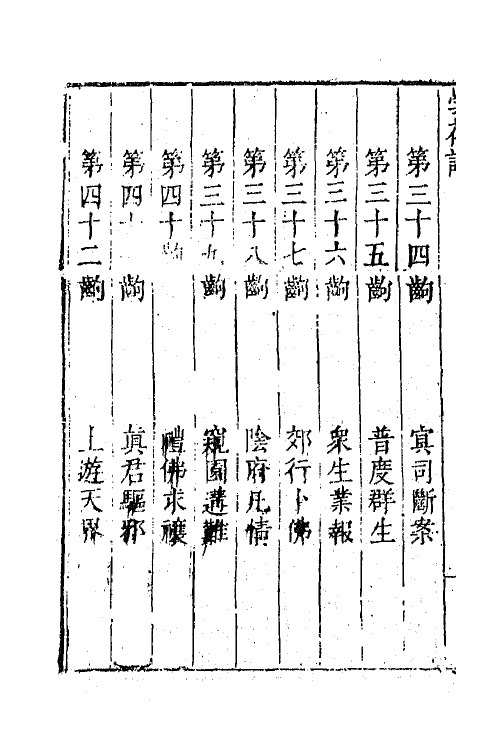 第三十四齣　冥司斷案
第三十五齣　普度群生
第三十六齣　衆生業報
第三十七齣　郊行卜佛
第三十八齣　陰府凡情
第三十九齣　窺園遘難
第四十齣　禮佛求禳
第四十一齣　眞君驅邪
第四十二齣　上遊天界